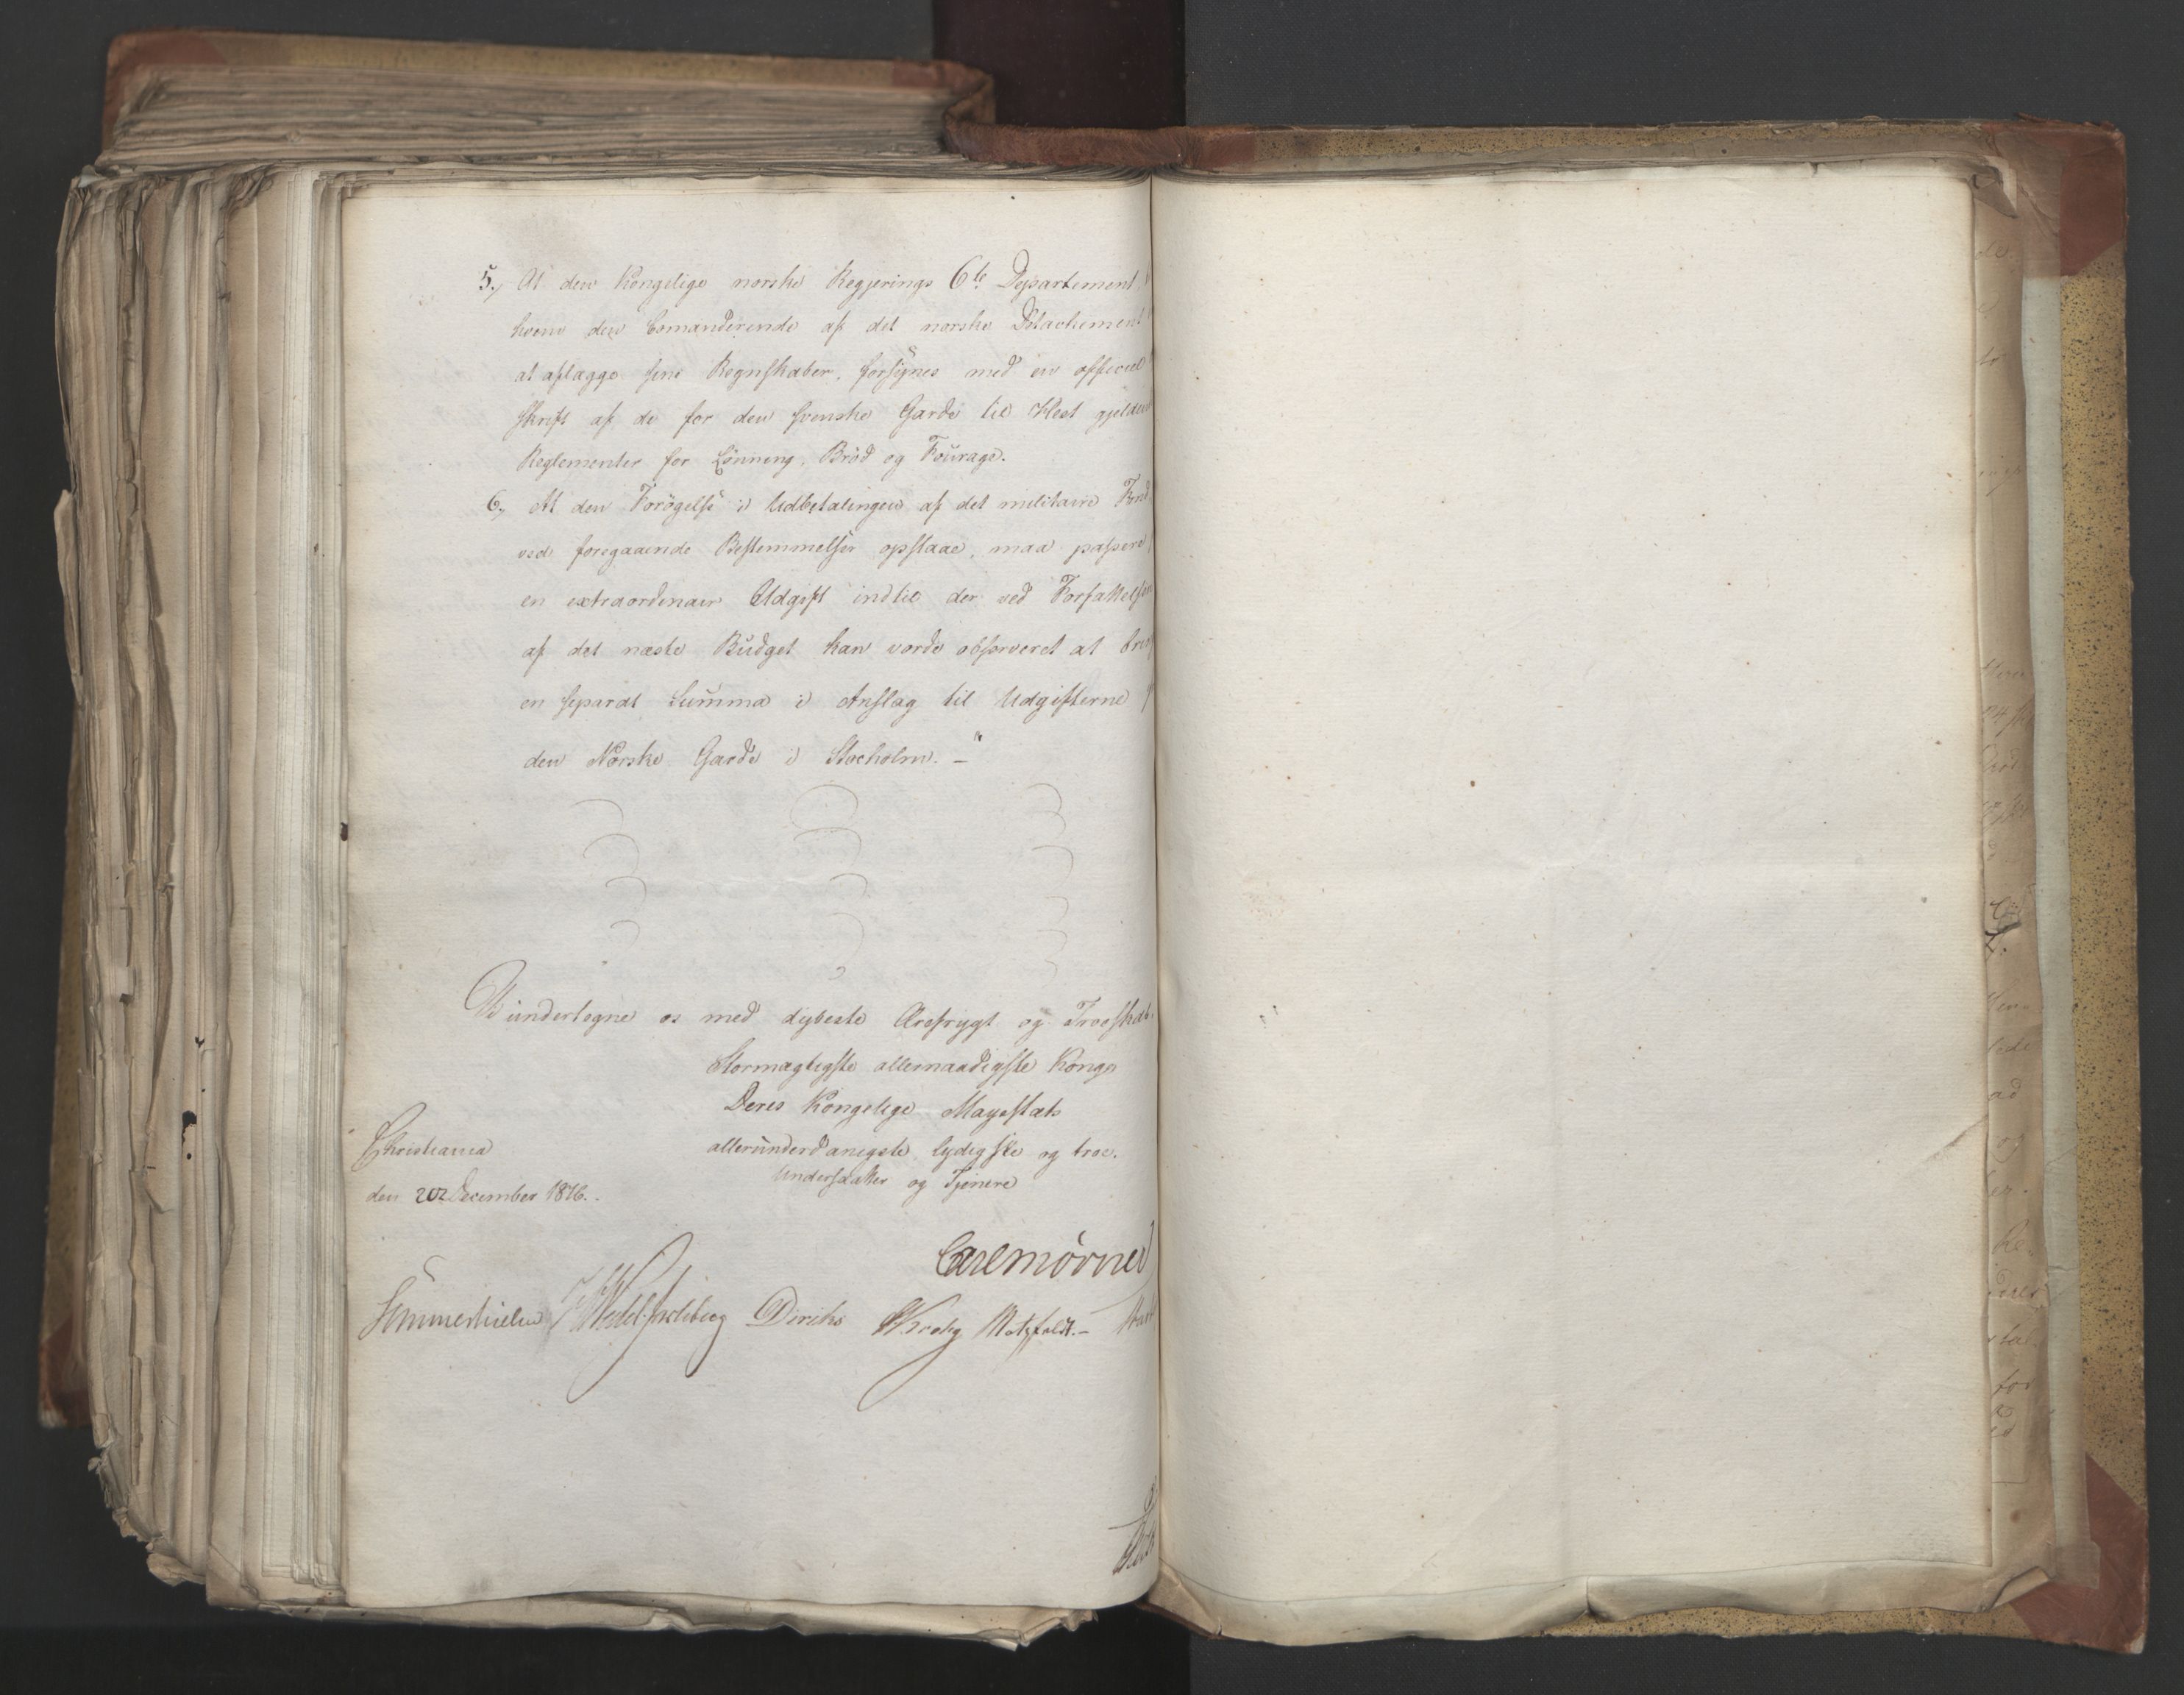 5., At den Kongelige norske Regjerings 6te Departement
hvem den Comanderende af det norske Detachement
at aflægge sine Regnskaber, forsynes med en officiel
skrift af de for den svenske Garde til Hest gjelden
Reglementer for Lønning, Brød og Fourage.
6., At den Forøgelse i Udbetalingen af det militaire Fond
ved foregaaende Bestemmelser opstaae, maa passere
en extraordinair Udgift indtil der ved Forfattelsen
af det næste Budget kan vorde observeret at
en separat Summa i Anslag til Udgifterne
den Norske Garde i Stocholm. –"
Vi undertegne os med dybeste Ærefrygt og Troeskab.
Stormægtigste allernaadigste Konge
Deres Kongelige Mayestæts
allerunderdanigste, lydigste og troe.
Undersaatter og Tjenere
Christiania
den 20 December 1816.
Carl Mörner
Sommerhielm Wedel-Jarlsberg Diriks Krohg Motzfeldt. –